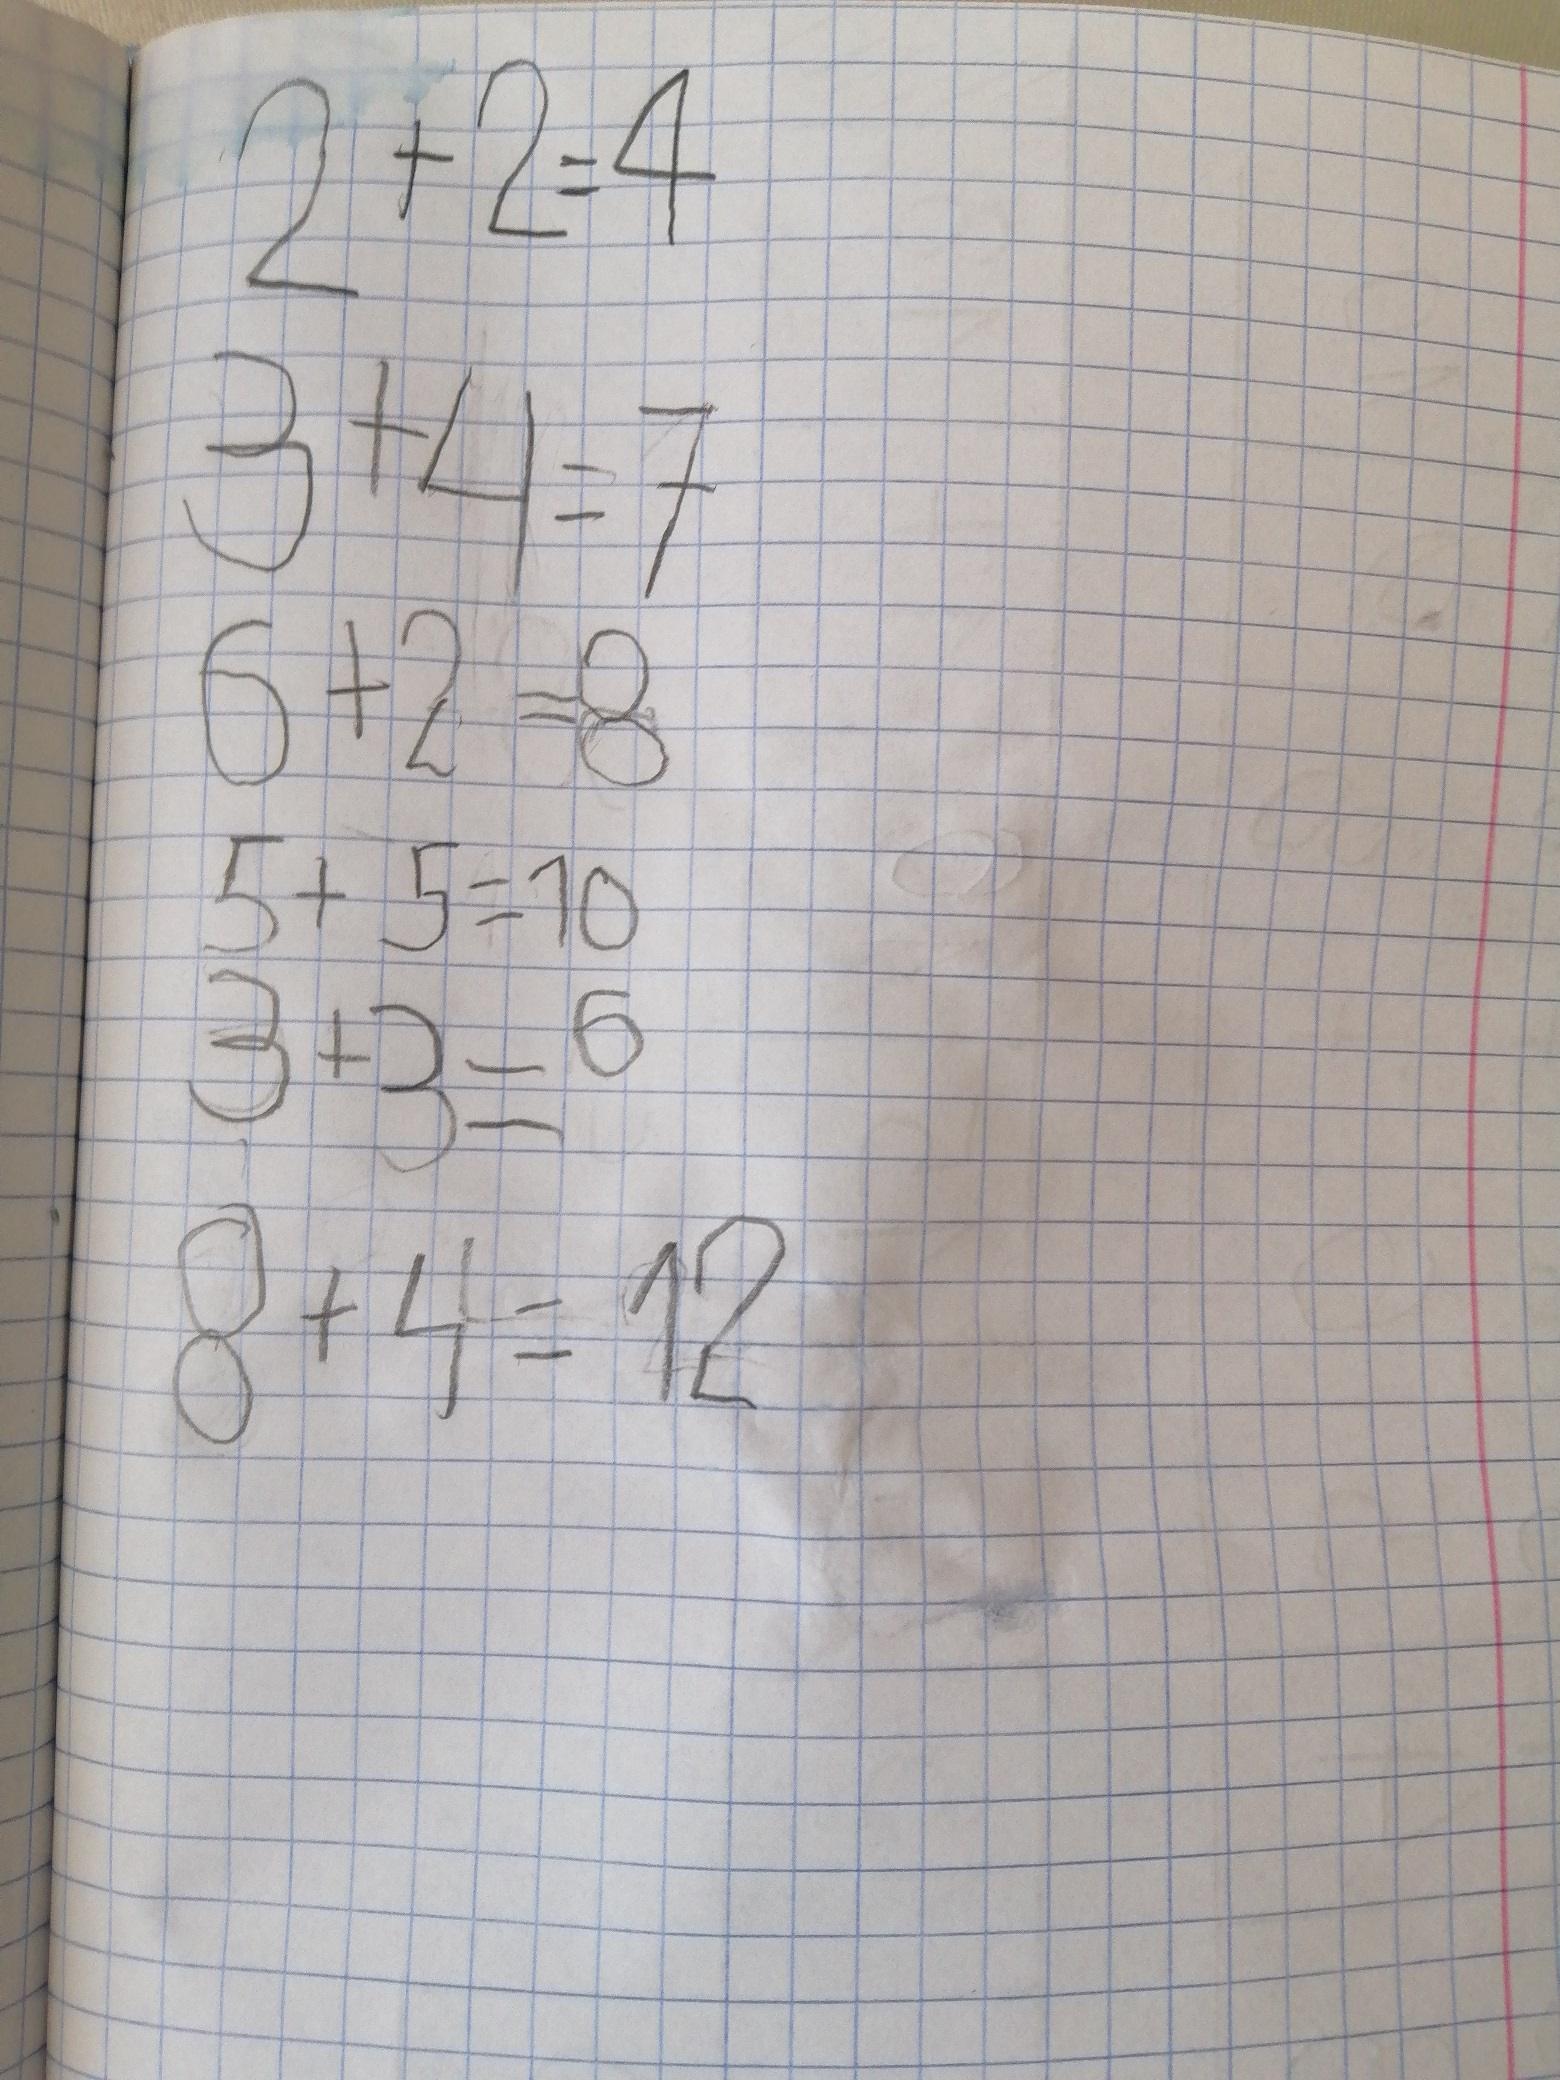 2+2=4
3+4=7
6+2=8
5+5=10
3+3=6
8+4=12